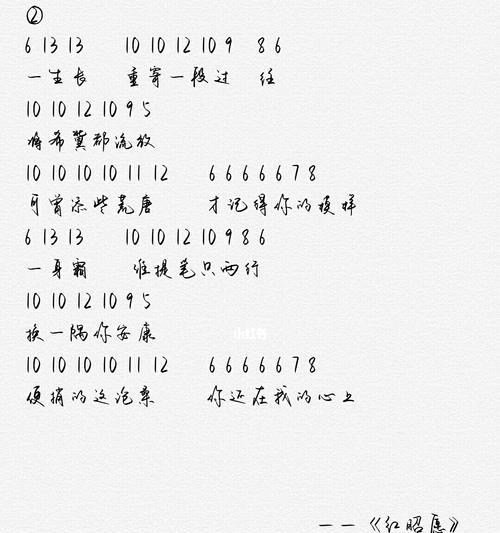 ②
6 13 13 10 10 12 10 9 8 6
一生长 重寄一段过往
10 10 12 10 9 5
将希冀都流放
10 10 10 10 11 12 6 6 6 6 6 7 8
可曾添些荒唐 才记得你的模样
6 13 13 10 10 12 10 9 8 6
一身霜 谁提笔只两行
10 10 12 10 9 5
换一隅你安康
10 10 10 10 11 12 6 6 6 6 6 7 8
便销的这 你还在我的心上
小红书
——《红昭愿》